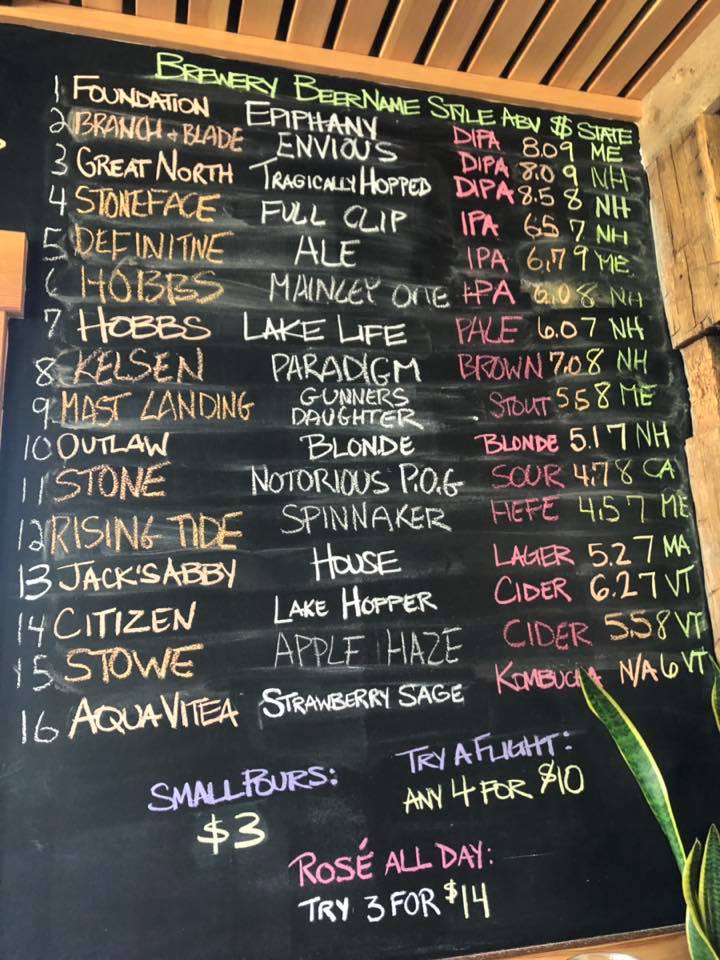 BREWERY BEER NAME STYLE ABV $$ STATE
1 FOUNDATION EPIPHANY DIPA 8.0 9 ME
2 BRANCH + BLADE ENVIOUS DIPA 8.0 9 NH
3 GREAT NORTH TRAGICALLY HOPPED DIPA 8.5 8 NH
4 STONEFACE FULL CLIP IPA 6.5 7 NH
5 DEFINITIVE ALE IPA 6.7 9 ME
6 HOBBS MAINLEY ONE IPA 6.0 8 NH
7 HOBBS LAKE LIFE PALE 6.0 7 NH
8 KELSEN PARADIGM BROWN 7.0 8 NH
9 MAST LANDING GUNNERS DAUGHTER STOUT 5.5 8 ME
10 OUTLAW BLONDE BLONDE 5.1 7 NH
11 STONE NOTORIOUS P.O.G SOUR 4.7 8 CA
12 RISING TIDE SPINNAKER HEFE 4.5 7 ME
13 JACK'S ABBY HOUSE LAGER 5.2 7 MA
14 CITIZEN LAKE HOPPER CIDER 6.2 7 VT
15 STOWE APPLE HAZE CIDER 5.5 8 VT
16 AQUAVITEA STRAWBERRY SAGE KOMBUCHA N/A 6 VT
SMALL POURS:
$3
TRY A FLIGHT:
ANY 4 FOR $10
ROSÉ ALL DAY:
TRY 3 FOR $14